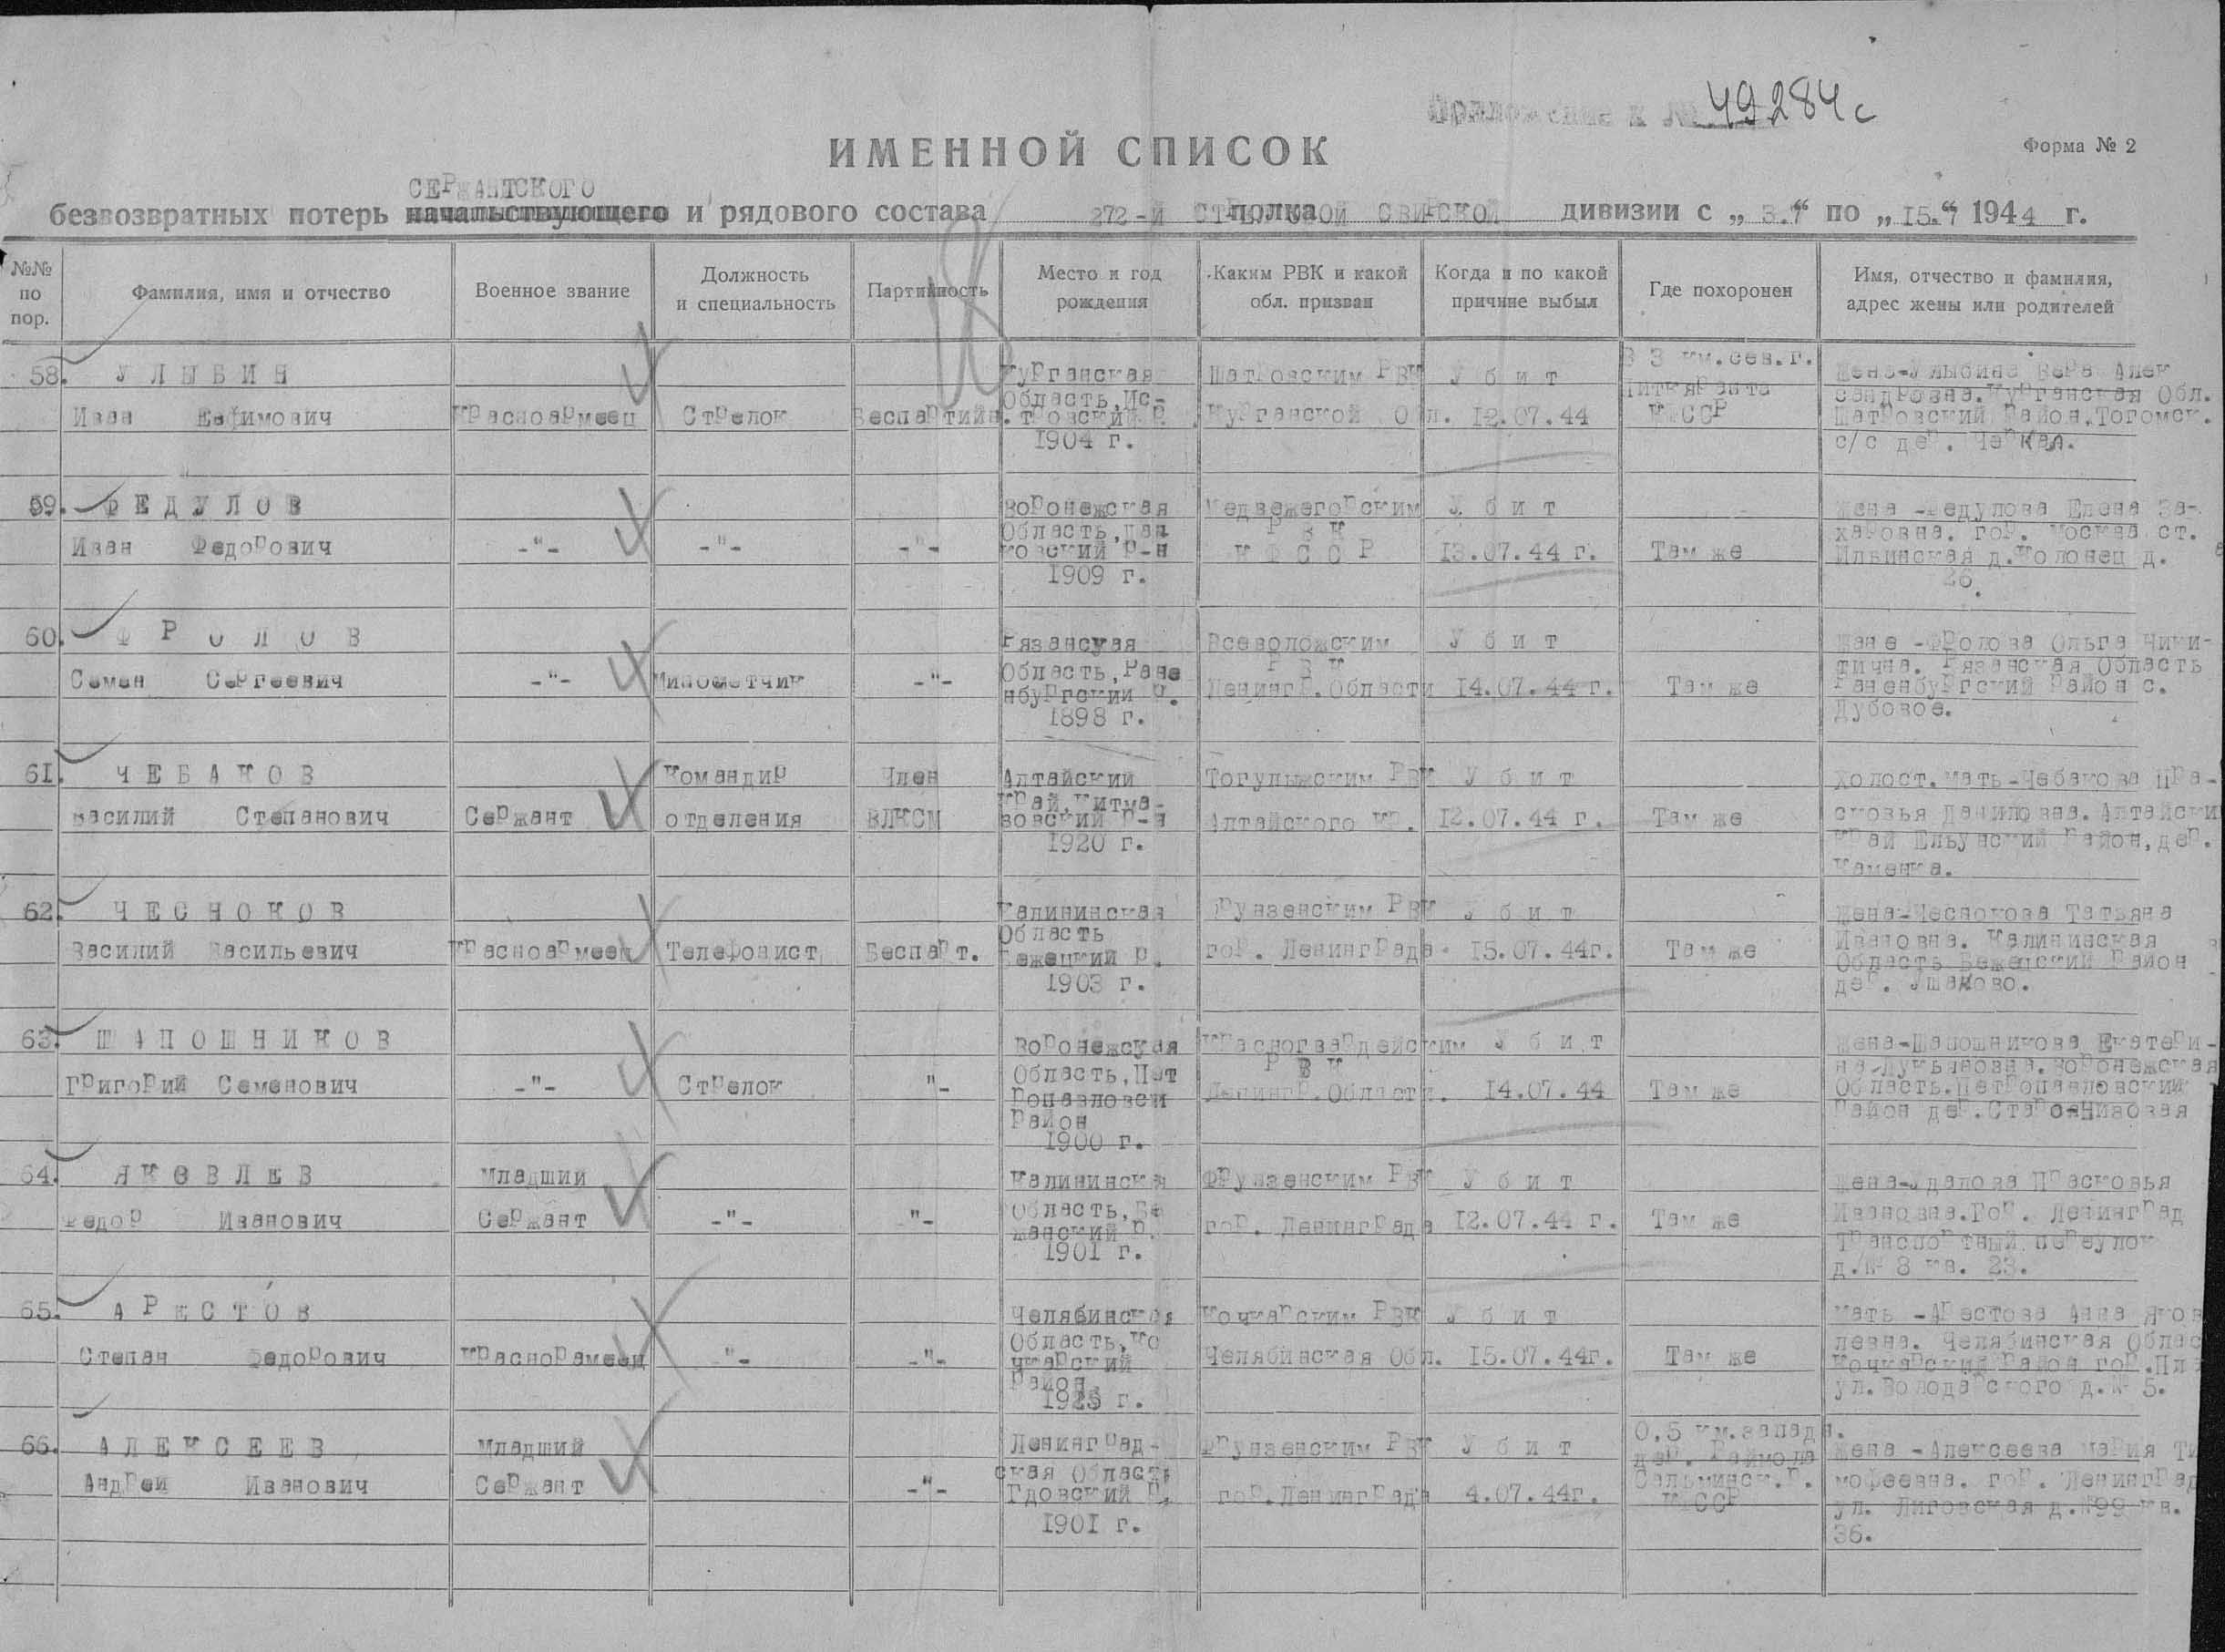 Приложение к №
49284с
ИМЕННОЙ СПИСОК
Форма № 2
СЕРЖАНТСКОГО
безвозвратных потерь начальствующего и рядового состава 272-й СТРЕЛКОВОЙ СВИРСКОЙ полка дивизии с „ 3.7 “ по „ 15.7 “ 1944 г.
№№ по пор.
Фамилия, имя и отчество
Военное звание
Должность и специальность
Партийность
Место и год рождения
Каким РВК и какой обл. призван
Когда и по какой причине выбыл
Где похоронен
Имя, отчество и фамилия, адрес жены или родителей
58. УЛЫБИН
Иван Ефимович
Красноармеец
Стрелок
Беспартийн.
Курганская
Область, Ис-
тровский Р.
1904 г.
Шатровским РВК
Курганской Обл.
Убит
12.07.44
В 3 км.сев.г.
Питкяранта
КФССР
Жена-Улыбина Вера Алек
сандровна.Курганская Обл.
Шатровский Район,Тогомск.
с/с дер.
59. ФЕДУЛОВ
Иван Федорович
-"-
-"-
-"-
Воронежская
Область,
ковский Р-н
1909 г.
Медвежегорским
РВК
КФССР
Убит
13.07.44 г.
Там же
Жена -Федулова Елена За-
харовна. гор. Москва ст.
Ильинская д.Колонец д.
26.
60. ФРОЛОВ
Семен Сергеевич
-"-
Минометчик
-"-
Рязанская
Область,Ране
нбургский Р.
1898 г.
Всеволожским
РВК
Ленингр.Области
Убит
14.07.44 г.
Там же
Жана -Фролова Ольга Ники-
тична. Рязанская Область
Раненбургский Район с.
Дубовое.
61. ЧЕБАКОВ
Василий Степанович
Сержант
Командир
отделения
Член
ВЛКСМ
Алтайский
Край,Китма-
зовский Р-н
1920 г.
Тогулыжским РВК
Алтайского кр.
Убит
12.07.44 г.
Там же
Холост.мать-Чебакова Пра-
сковья Даниловна. Алтайски
Край Ельунский Район,дер.
Каменка.
62. ЧЕСНОКОВ
Василий Васильевич
Красноармеец
Телефонист
Беспарт.
Калининская
Область
Бежецкий Р.
1903 г.
Фрунзенским РВК
гор. Ленинграда
Убит
15.07.44г.
Там же
Жена-Чеснокова Татьяна
Ивановна. Калининская
Область Бежецкий Район
дер. Ушаково.
63. ШАПОШНИКОВ
Григорий Семенович
-"-
Стрелок
"-
Воронежская
Область,Пет
ропавловски
Район
1900 г.
Красногвардейским
РВК
Ленингр.Области.
Убит
14.07.44
Там же
Жена-Шапошникова Екатери-
на-Лукьяновна.Воронежская
Область.Петропавловский
Район дер.
64. ЯКОВЛЕВ
Федор Иванович
Младший
Сержант
-"-
"-
Калининска
Область, Бе
жанский Р.
1901 г.
Фрунзенским РВК
гор. Ленинграда
Убит
12.07.44 г.
Там же
Жена-Удалова Прасковья
Ивановна.Гор. Ленинград
Транспортный переулок
д.№ 8 кв. 23.
65. АРЕСТОВ
Степан Федорович
Краснорамеец
"-
-"-
Челябинская
Область,Ко
чкарский
Район
1925 г.
Кочкарским РВК
Челябинская Обл.
Убит
15.07.44г.
Там же
Мать -Арестова Анна Яков
левна. Челябинская Облас
Кочкарский Район гор.Пла
ул.Володарского д.№ 5.
66. АЛЕКСЕЕВ
Андрей Иванович
Младший
Сержант
-"-
Ленинград-
ская Область
Гдовский Р.
1901 г.
Фрунзенским РВК
гор.Ленинграда
Убит
4.07.44г.
0,5 км.западн.
дер. Раймола
Сальминск.р.
КФССР
Жена -Алексеева Мария Ти
мофеевна. гор. Ленинград
ул. Лиговская д.№99 кв.
36.